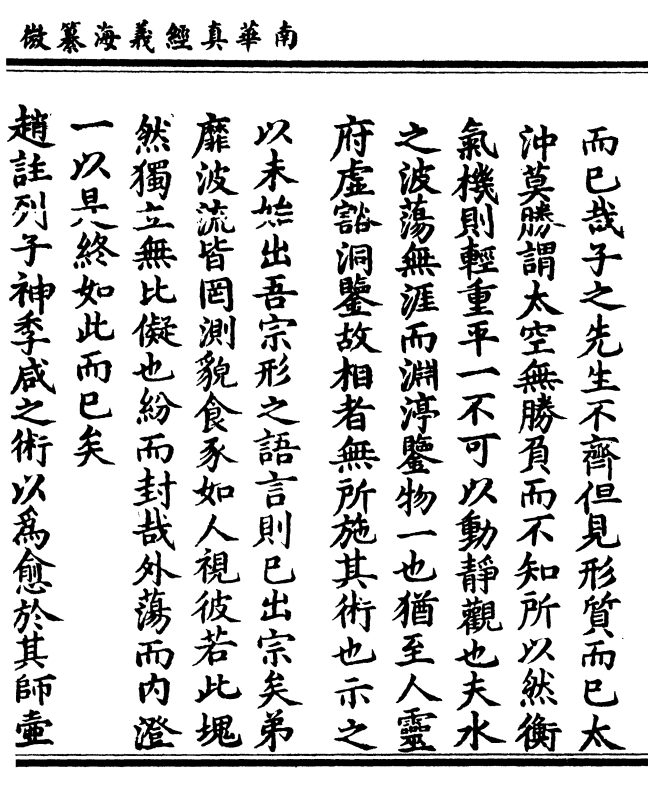 南華真經義海纂微
而已哉子之先生不齊但見形質而已太
沖莫勝謂太空無勝負而不知所以然衡
氣機則輕重平一不可以動靜觀也夫水
之波蕩無涯而淵渟鑒物一也猶至人靈
府虛豁洞鑒故相者無所施其術也示之
以未始出吾宗形之語言則已出宗矣弟
靡波流皆罔測貌食豕如人視彼若此塊
然獨立無比儗也紛而封哉外蕩而內澄
一以是終如此而已矣
趙註列子神季咸之術以為愈於其師壺